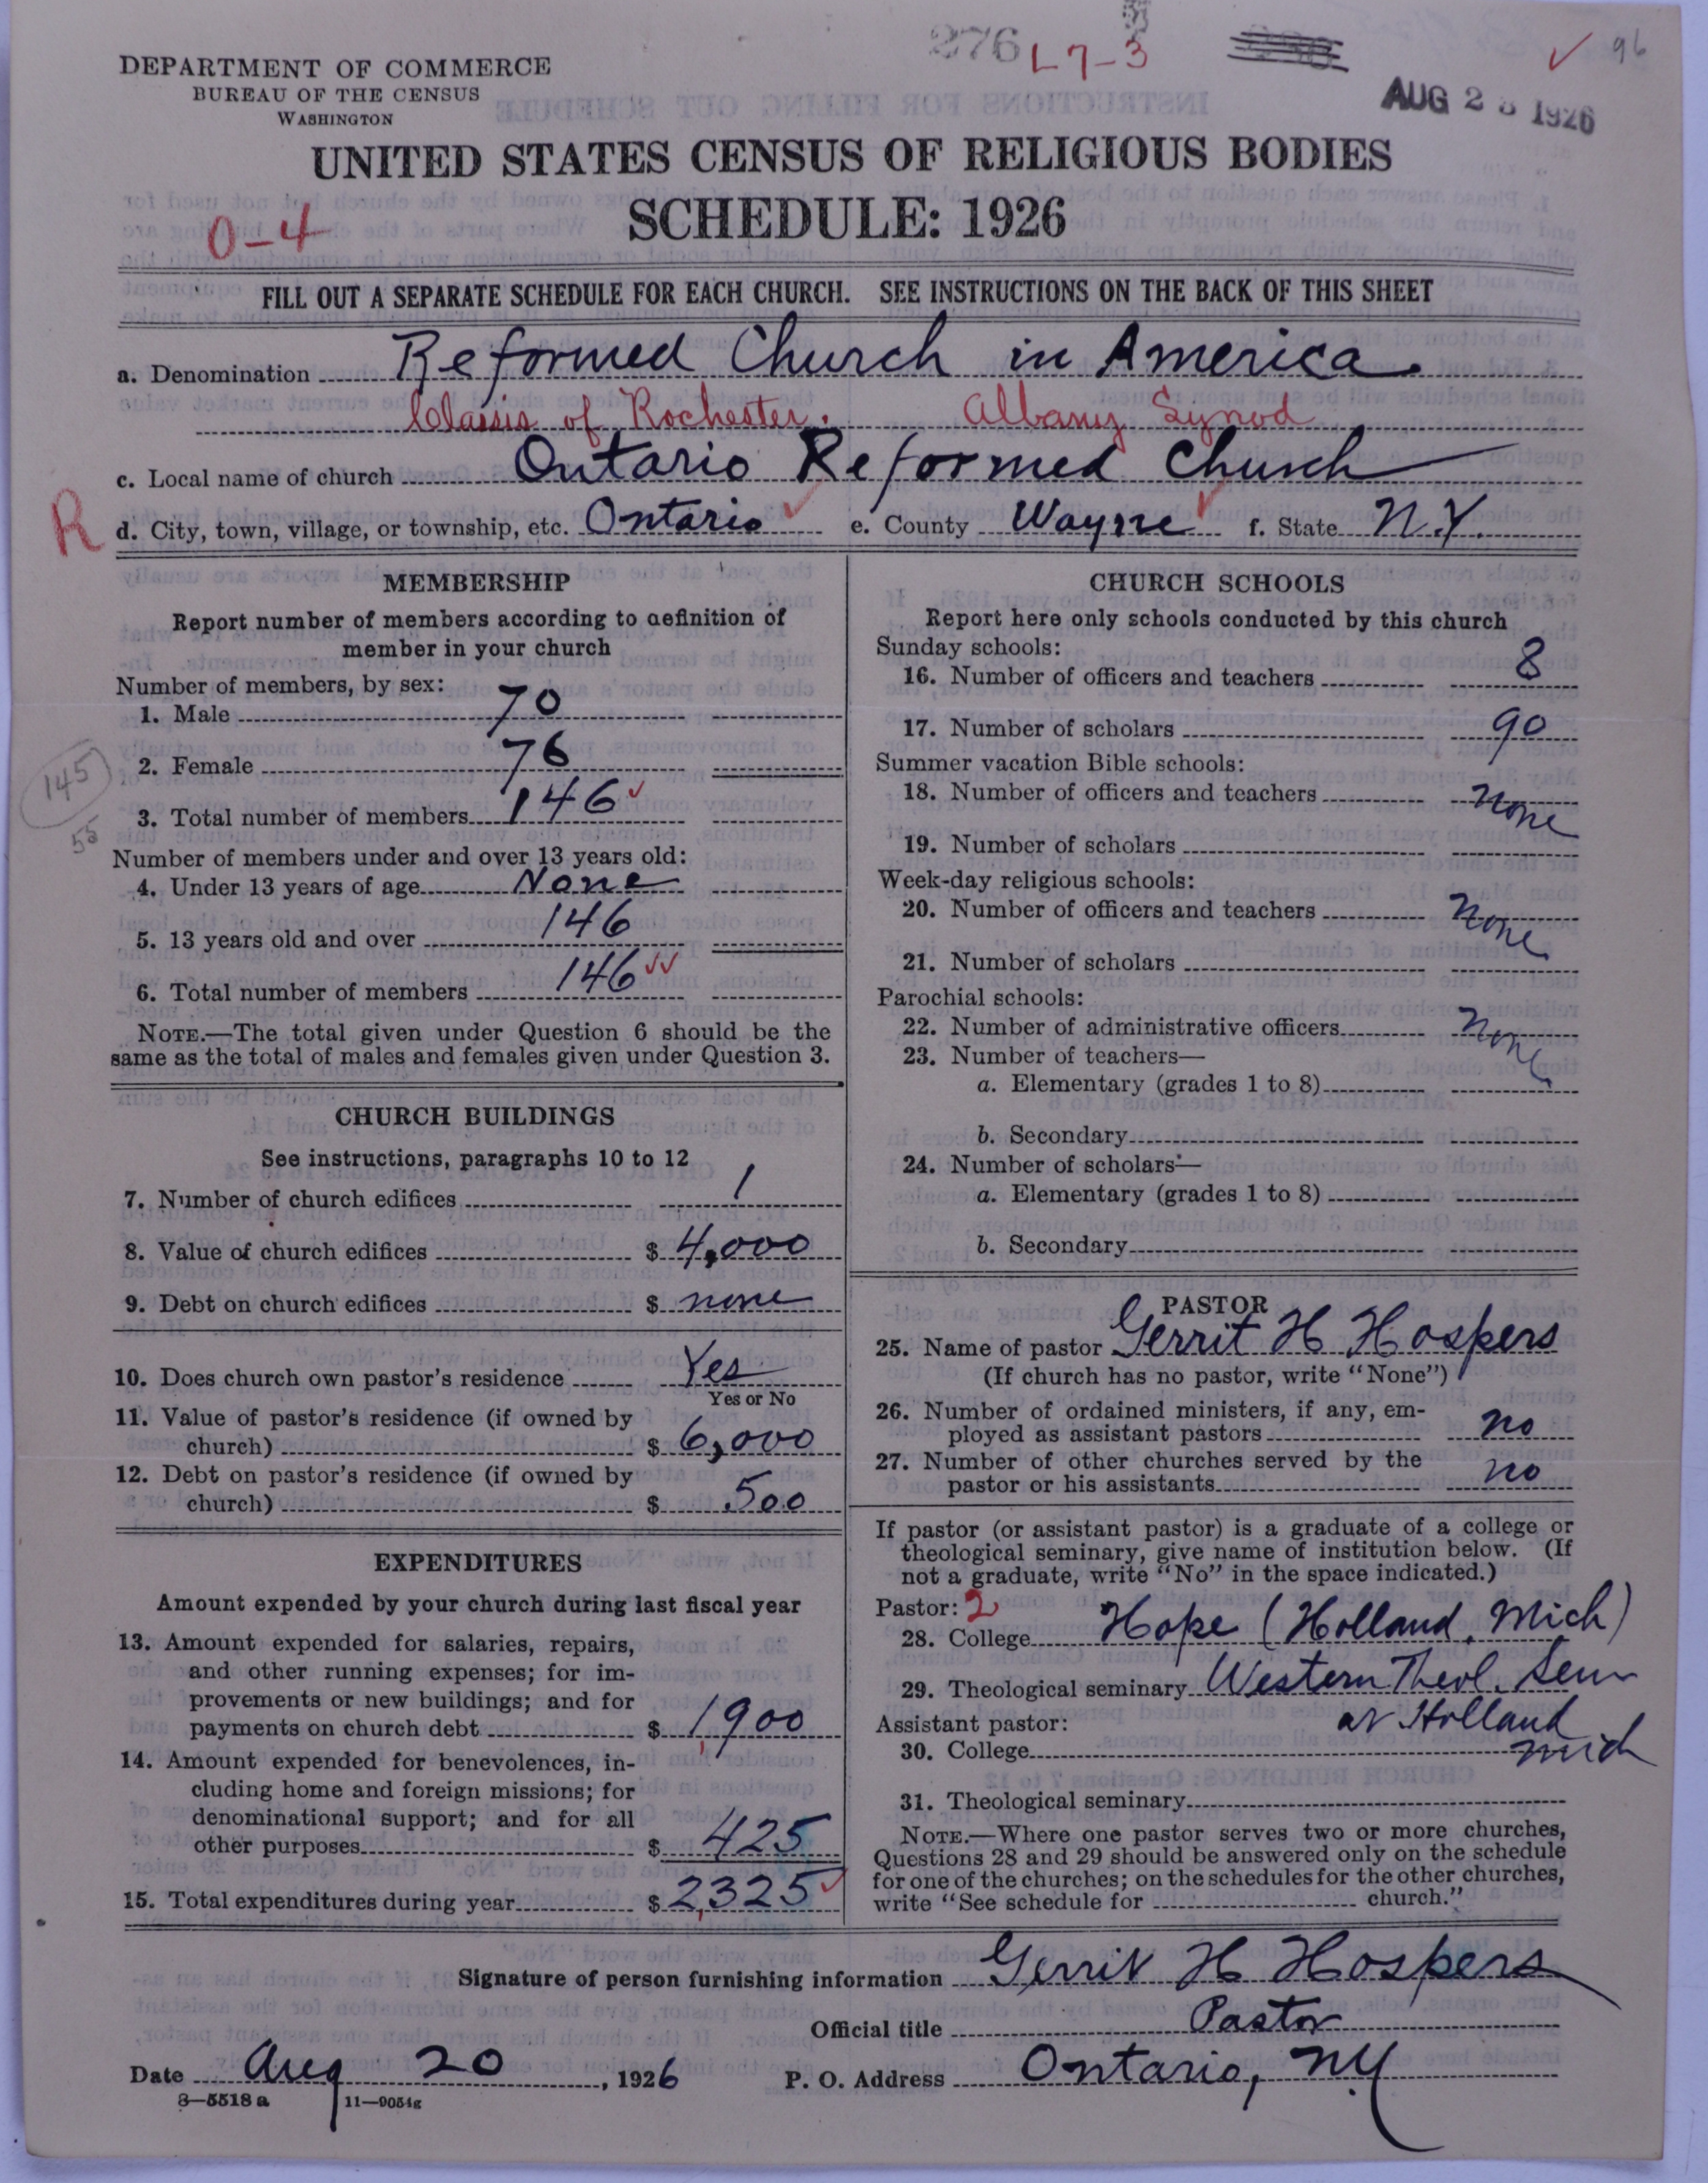 276 L7-3
96
DEPARTMENT OF COMMERCE
BUREAU OF THE CENSUS
WASHINGTON
AUG 2 1926
UNITED STATES CENSUS OF RELIGIOUS BODIES
SCHEDULE: 1926
0-4
FILL OUT A SEPARATE SCHEDULE FOR EACH CHURCH. SEE INSTRUCTIONS ON THE BACK OF THIS SHEET
a. Denomination Reformed Church in America.
Classis of Rochester. Albany Synod
c. Local name of church Ontario Reformed Church
R
d. City, town, village, or township, etc. Ontario e. County Wayne f. State N.Y.
MEMBERSHIP
Report number of members according to definition of
member in your church
Number of members, by sex:
1. Male 70
2. Female 76
145
55
3. Total number of members 146
Number of members under and over 13 years old:
4. Under 13 years of age None
5. 13 years old and over 146
6. Total number of members 146
NOTE.—The total given under Question 6 should be the
same as the total of males and females given under Question 3.
CHURCH BUILDINGS
See instructions, paragraphs 10 to 12
7. Number of church edifices 1
8. Value of church edifices $ 4,000
9. Debt on church edifices $ none
10. Does church own pastor's residence Yes
Yes or No
11. Value of pastor's residence (if owned by
church) $ 6,000
12. Debt on pastor's residence (if owned by
church) $ 500
EXPENDITURES
Amount expended by your church during last fiscal year
13. Amount expended for salaries, repairs,
and other running expenses; for im-
provements or new buildings; and for
payments on church debt $ 1,900
14. Amount expended for benevolences, in-
cluding home and foreign missions; for
denominational support; and for all
other purposes $ 425
15. Total expenditures during year $ 2,325
CHURCH SCHOOLS
Report here only schools conducted by this church
Sunday schools:
16. Number of officers and teachers 8
17. Number of scholars 90
Summer vacation Bible schools:
18. Number of officers and teachers none
19. Number of scholars
Week-day religious schools:
20. Number of officers and teachers none
21. Number of scholars
Parochial schools:
22. Number of administrative officers none
23. Number of teachers—
a. Elementary (grades 1 to 8)
b. Secondary
24. Number of scholars—
a. Elementary (grades 1 to 8)
b. Secondary
PASTOR
25. Name of pastor Gerrit H Hospers
(If church has no pastor, write "None")
26. Number of ordained ministers, if any, em-
ployed as assistant pastors no
27. Number of other churches served by the
pastor or his assistants no
If pastor (or assistant pastor) is a graduate of a college or
theological seminary, give name of institution below. (If
not a graduate, write "No" in the space indicated.)
Pastor: 2
28. College Hope (Holland, Mich)
29. Theological seminary Western Theol. Sem
Assistant pastor: at Holland
30. College Mich
31. Theological seminary
NOTE.—Where one pastor serves two or more churches,
Questions 28 and 29 should be answered only on the schedule
for one of the churches; on the schedules for the other churches,
write "See schedule for church."
Signature of person furnishing information Gerrit H Hospers
Official title Pastor
Date Aug 20, 1926 P. O. Address Ontario, N.Y
8—5518 a 11—9054g